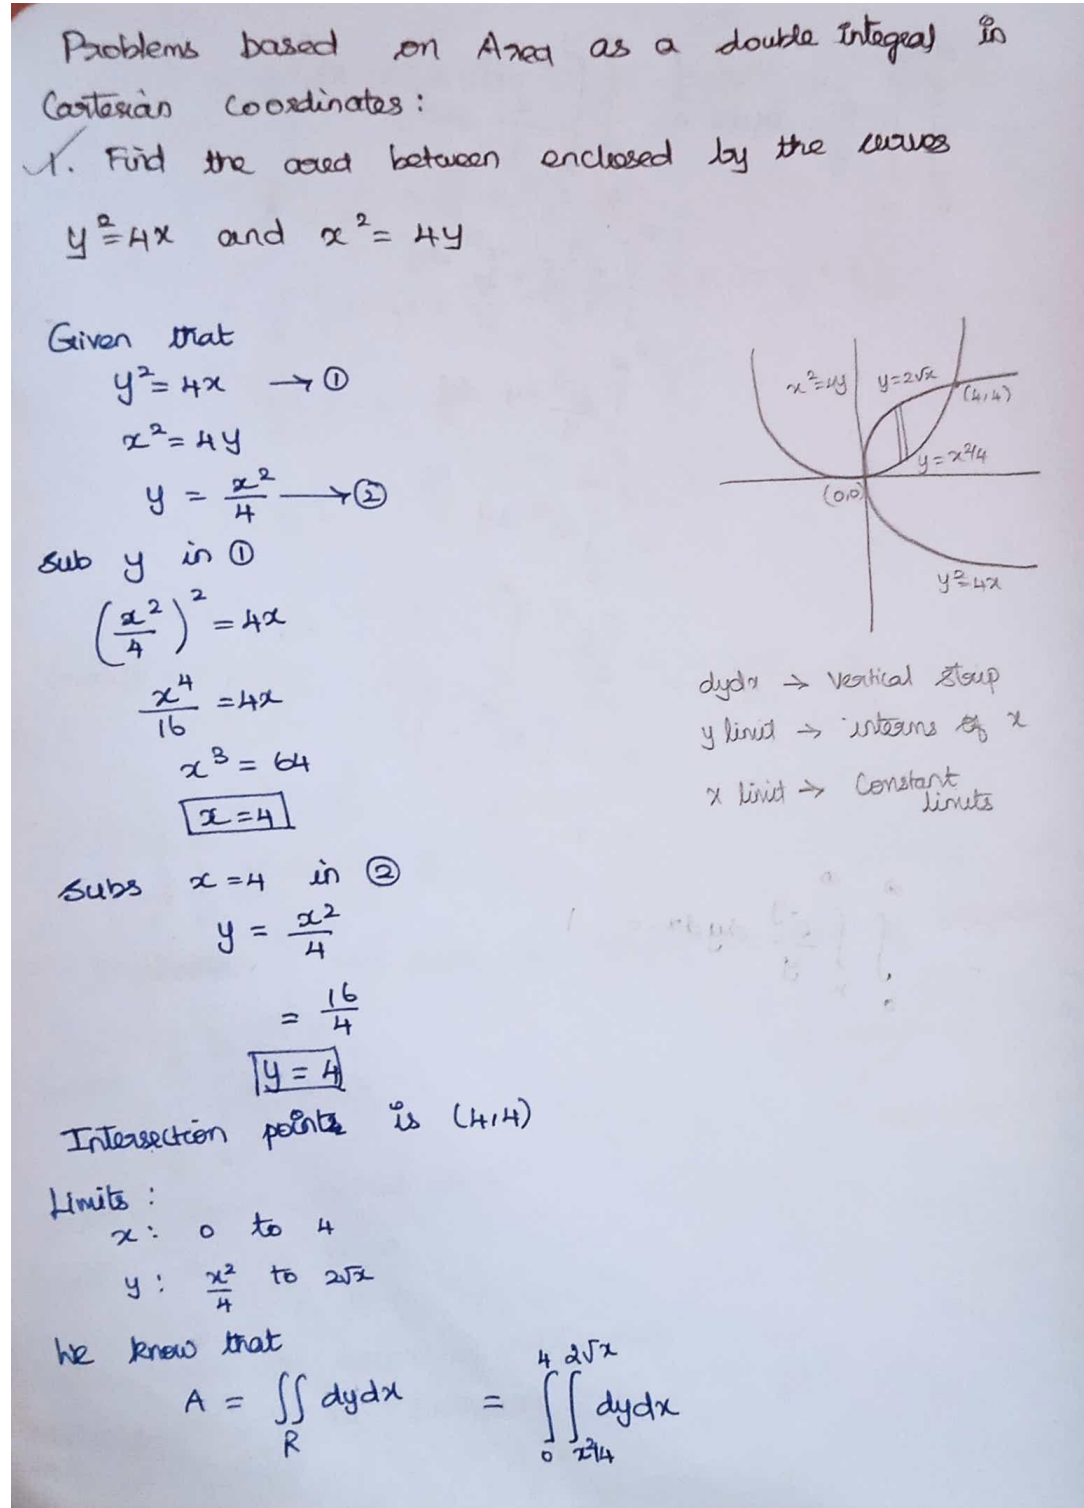 Problems based on Area as a double integral in
Cartesian Coordinates:
1. Find the area between enclosed by the curves
y²=4x and x²= 4y
Given that
y²= 4x → ①
x²= 4y
y = x²/4 → ②
Sub y in ①
(x²/4)² = 4x
x⁴/16 = 4x
x³ = 64
x=4
Subs x=4 in ②
y = x²/4
= 16/4
y = 4
Intersection points is (4,4)
Limits :
x: 0 to 4
y: x²/4 to 2√x
We know that
A = ∬_R dydx = ∫₀⁴ ∫_{x²/4}^{2√x} dydx
x²=4y
y=2√x
(4,4)
y=x²/4
(0,0)
y²=4x
dydx → Vertical strip
y limit → interms of x
x limit → Constant
limits